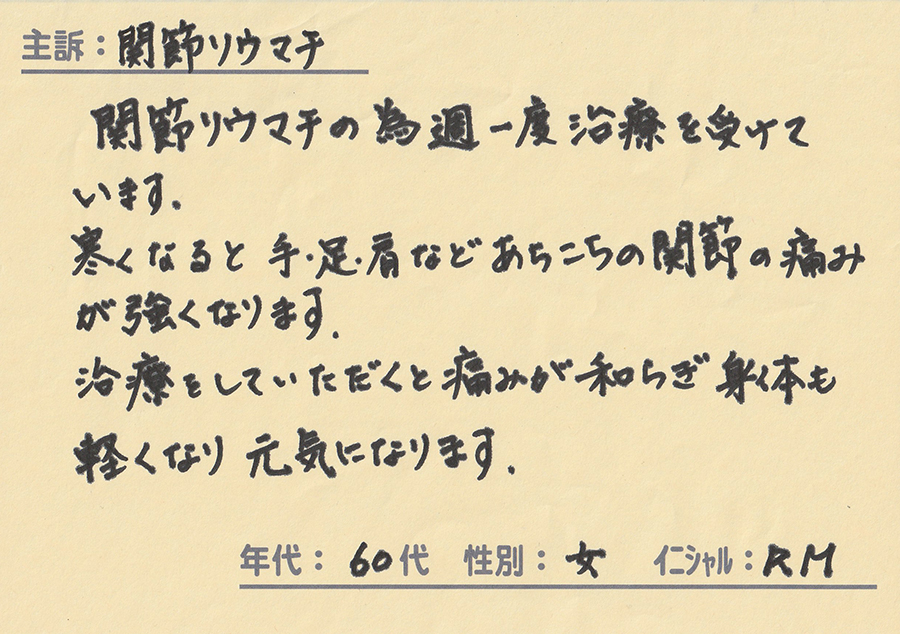 主訴：関節リウマチ
関節リウマチの為週一度治療を受けて
います.
寒くなると 手・足・肩などあちこちの関節の痛み
が強くなります.
治療をしていただくと痛みが和らぎ 身体も
軽くなり 元気になります.
年代： 60代 性別： 女 ｲﾆｼｬﾙ：RM